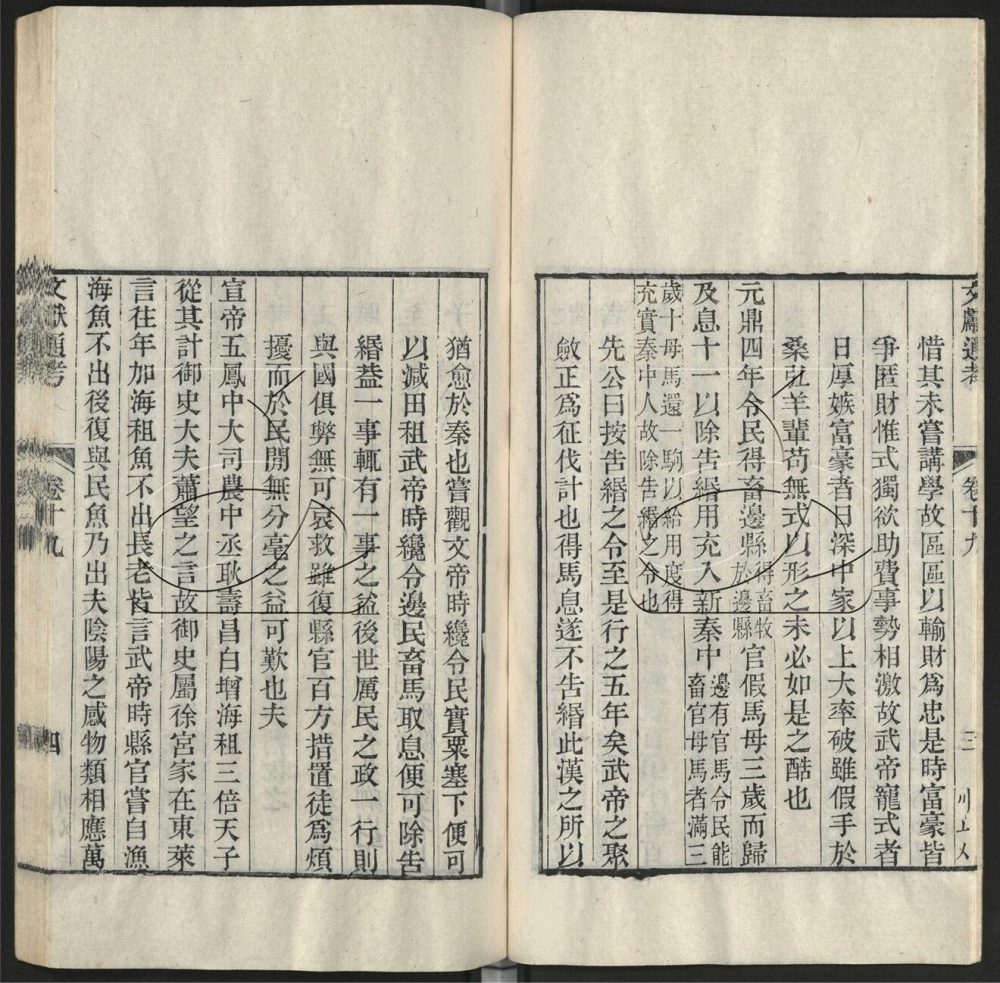 文獻通考 卷十九 三
惜其未嘗講學故區區以輸財爲忠是時富豪皆
爭匿財惟式獨欲助費事勢相激故武帝寵式者
日厚嫉富豪者日深中家以上大率破雖假手於
桑弘羊輩苟無式以形之未必如是之酷也
元鼎四年令民得畜邊縣得畜牧於邊縣官假馬母三歲而歸
及息十一以除告緡用充入新秦中邊有官馬令民能畜官母馬者滿三
歲十母馬還一駒以給用度得充實秦中人故除告緡之令也
先公曰按告緡之令至是行之五年矣武帝之聚
斂正爲征伐計也得馬息遂不告緡此漢之所以
猶愈於秦也嘗觀文帝時纔令民實粟塞下便可
以減田租武帝時纔令邊民畜馬取息便可除告
緡葢一事輒有一事之益後世厲民之政一行則
與國俱弊無可哀救雖復縣官百方措置徒爲煩
擾而於民閒無分毫之益可歎也夫
宣帝五鳳中大司農中丞耿壽昌白增海租三倍天子
從其計御史大夫蕭望之言故御史屬徐宮家在東萊
言往年加海租魚不出長老皆言武帝時縣官嘗自漁
海魚不出後復與民魚乃出夫陰陽之感物類相應萬
文獻通考 卷十九 四